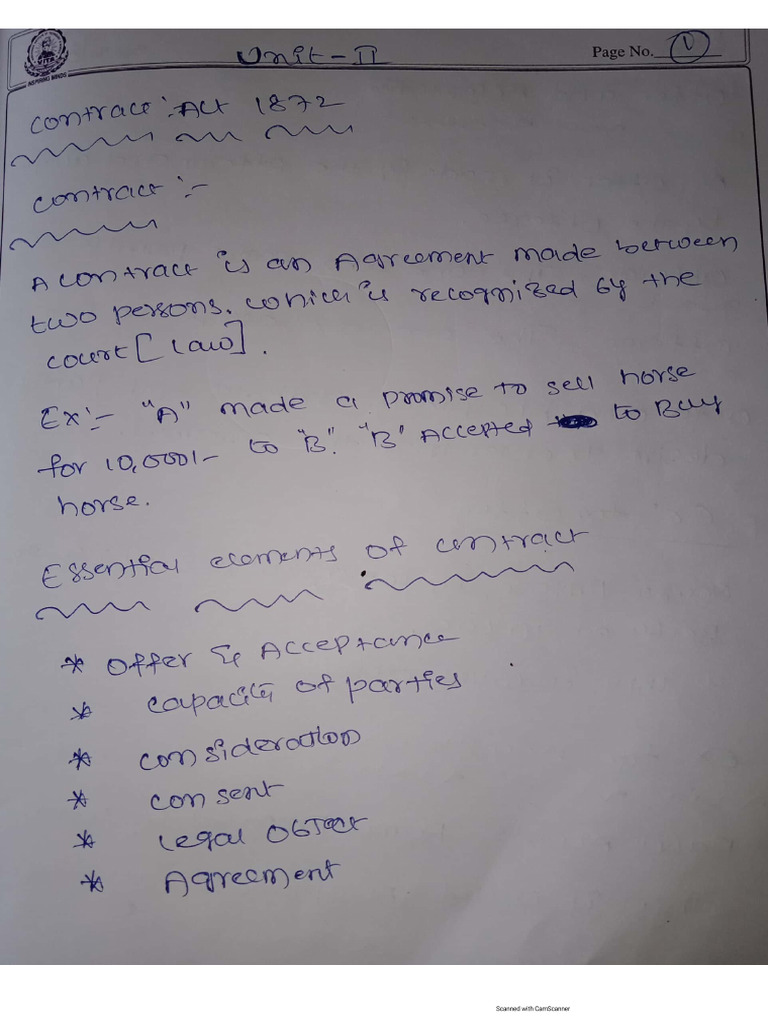 Unit-II
Page No. 1
INSPIRING MINDS
Contract Act 1872
Contract :-
A contract is an Agreement made between
two persons. which is recognized by the
court [law].
Ex:- "A" made a promise to sell horse
for 10,000/- to "B". "B" Accepted to Buy
horse.
Essential elements of contract
* Offer & Acceptance
* capacity of parties
* consideration
* consent
* Legal Object
* Agreement
Scanned with CamScanner